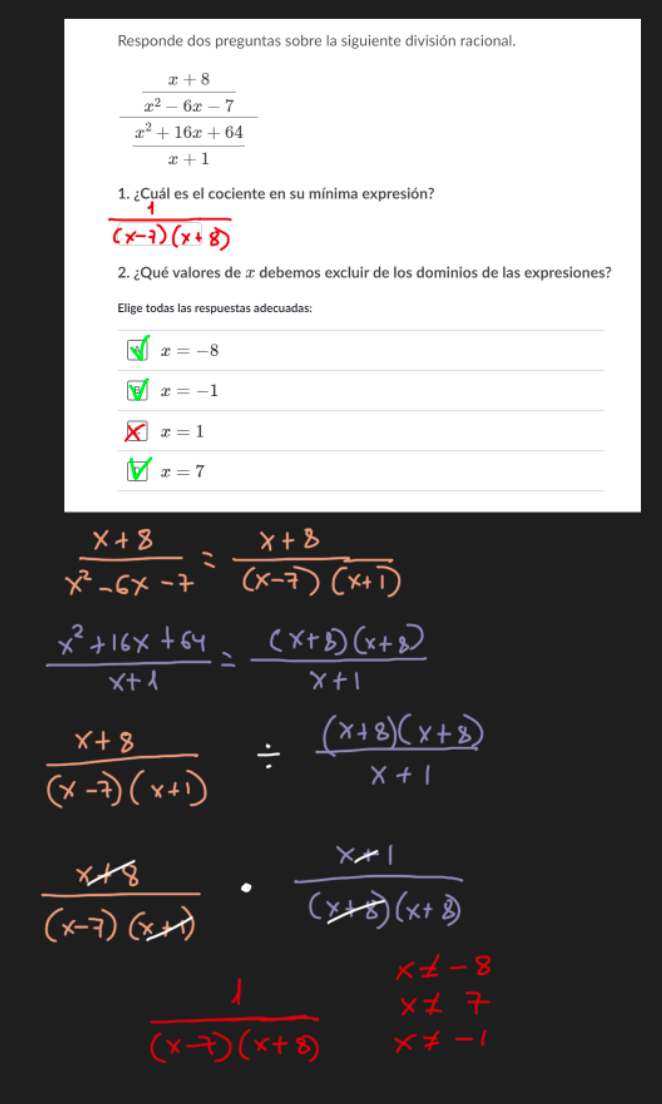 Responde dos preguntas sobre la siguiente división racional.
x + 8
x² − 6x − 7
x² + 16x + 64
x + 1
1. ¿Cuál es el cociente en su mínima expresión?
1
(x-7)(x+8)
2. ¿Qué valores de x debemos excluir de los dominios de las expresiones?
Elige todas las respuestas adecuadas:
x = −8
x = −1
x = 1
x = 7
x+8 = x+8
x²-6x-7 (x-7)(x+1)
x²+16x+64 = (x+8)(x+8)
x+1 x+1
x+8 ÷ (x+8)(x+8)
(x-7)(x+1) x+1
x+8 · x+1
(x-7)(x+1) (x+8)(x+8)
1
(x-7)(x+8)
x≠-8
x≠ 7
x≠-1